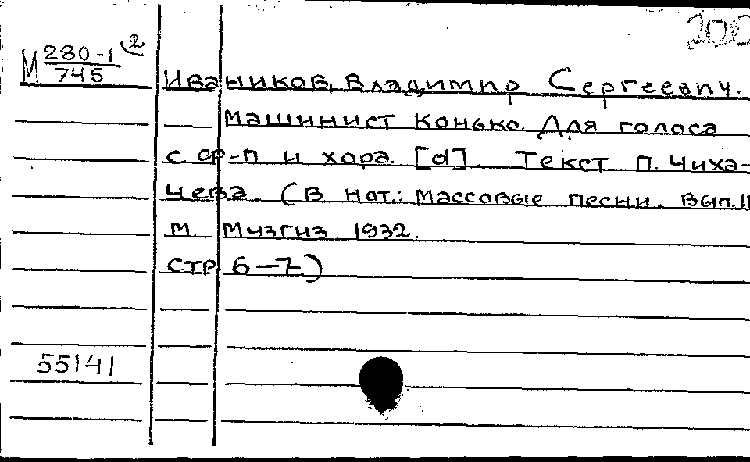 200
М 280-1 ②
745
Иваников, Владимир Сергеевич.
Машинист Конько. Для голоса
с ф-п и хора [d]. Текст П. Чиха-
чева. (В нот.: Массовые песни. Вып.II
М Музгиз 1932.
стр 6-7)
55141